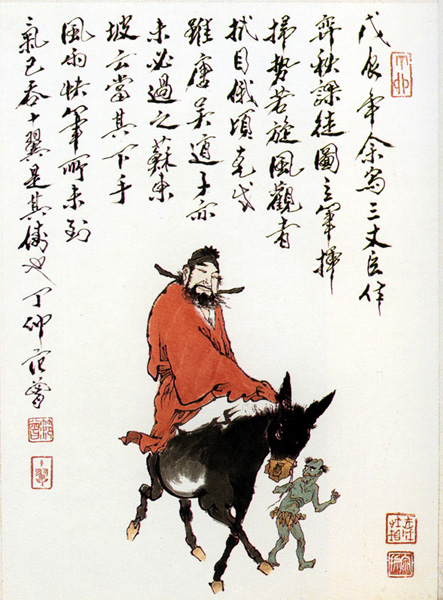 戊辰年余寫三丈巨作
弈秋課徒圖立筆揮
掃勢若旋風觀者
拭目俄頃克成
雖唐吳道子亦
未必過之蘇東
坡云當其下手
風雨快筆所未到
氣已吞十翼是其儔也 范曾